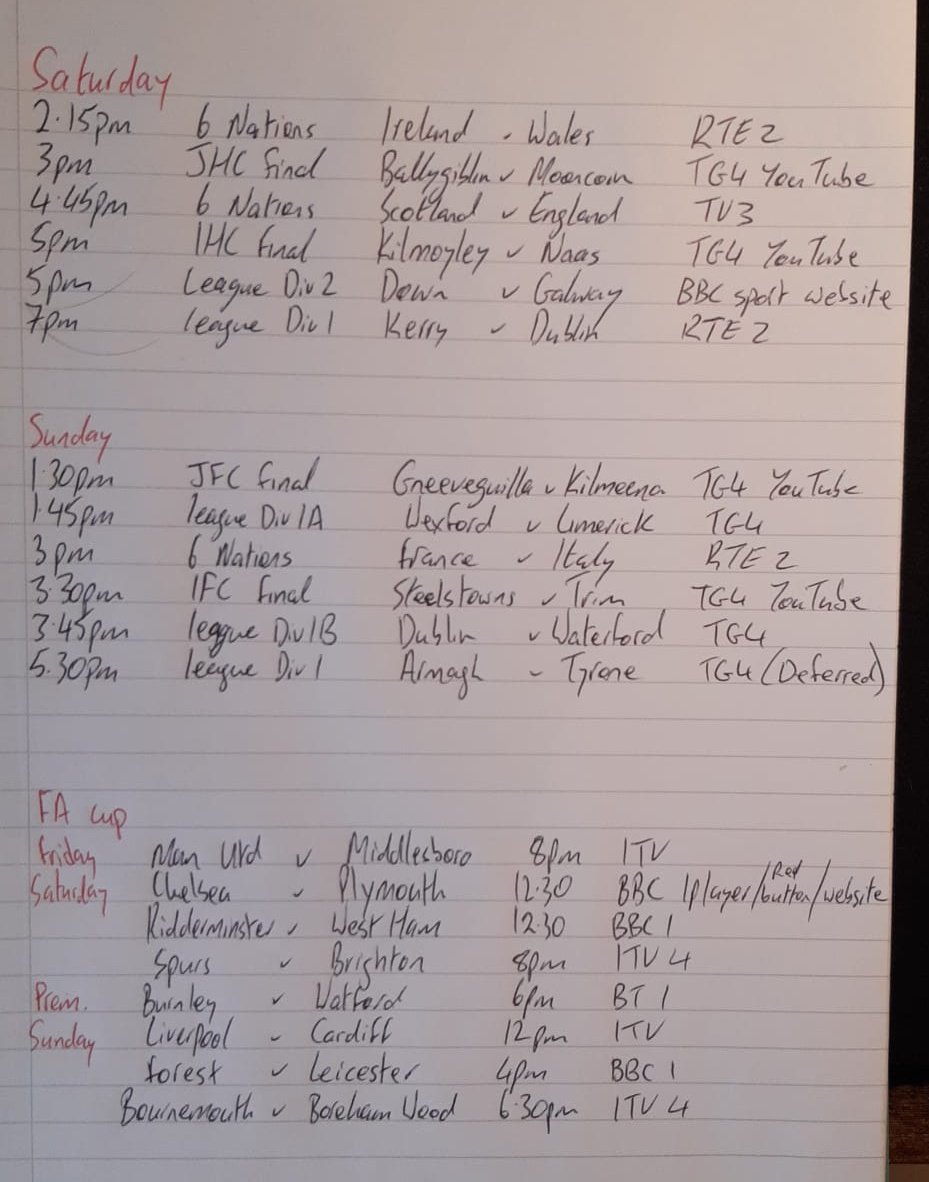 Saturday
2.15pm 6 Nations Ireland v Wales RTE 2
3pm JHC final Ballygiblin v Mooncoin TG4 YouTube
4.45pm 6 Nations Scotland v England TV3
5pm IHC final Kilmoyley v Naas TG4 YouTube
5pm League Div 2 Down v Galway BBC sport website
7pm league Div 1 Kerry v Dublin RTE 2
Sunday
1.30pm JFC final Gneeveguilla v Kilmeena TG4 YouTube
1.45pm league Div 1A Wexford v Limerick TG4
3pm 6 Nations france v Italy RTE 2
3.30pm IFC final Steelstowns v Trim TG4 YouTube
3.45pm league Div 1B Dublin v Waterford TG4
5.30pm league Div 1 Armagh v Tyrone TG4 (Deferred)
FA cup
friday Man Utd v Middlesboro 8pm ITV
Saturday Chelsea v Plymouth 12.30 BBC Iplayer/Red button/website
Kidderminster v West Ham 12.30 BBC 1
Spurs v Brighton 8pm ITV 4
Prem. Burnley v Watford 6pm BT 1
Sunday Liverpool v Cardiff 12pm ITV
forest v Leicester 4pm BBC 1
Bournemouth v Boreham Wood 6.30pm ITV 4